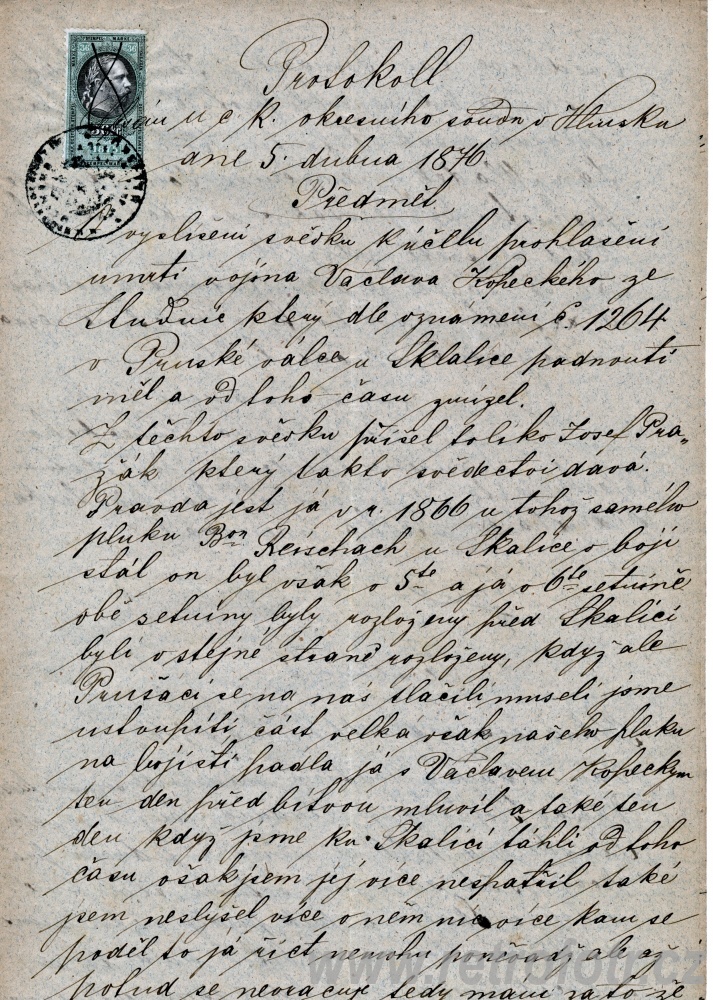 Protokoll
u c. k. okresního soudu v Hlinsku
dne 5. dubna 1876
Předmět
vyslišení svědku k účelu prohlašení
umrti vojína Václava Kopeckého ze
Studnic který dle oznámení č. 1264
v Pruské válce u Skalice padnouti
měl a od toho času zmizel.
Z těchto svědku přišel toliko Josef Pra„
žák který takto svědectví dává.
Pravda jest já v r. 1866 u tohož samého
pluku Bon Reischach u Skalice v boji
stál on byl však v 5te a já v 6te setnině
obě setniny byly rozloženy před Skalicí
byli v stejné straně rozloženy, když ale
Prušáci se na nás tlačili museli jsme
ustoupiti, část velká však našeho pluku
na bojišti padla já s Václavem Kopeckym
ten den před bitvou mluvil a také ten
den když jsme ku Skalici táhli od toho
času však jsem jej více nespatřil také
jsem neslyšel více o něm nic více kam se
poděl to já řict nemohu poněvadž ale až
potud se nevracuje tedy mám za to že
www.retrofotr.cz